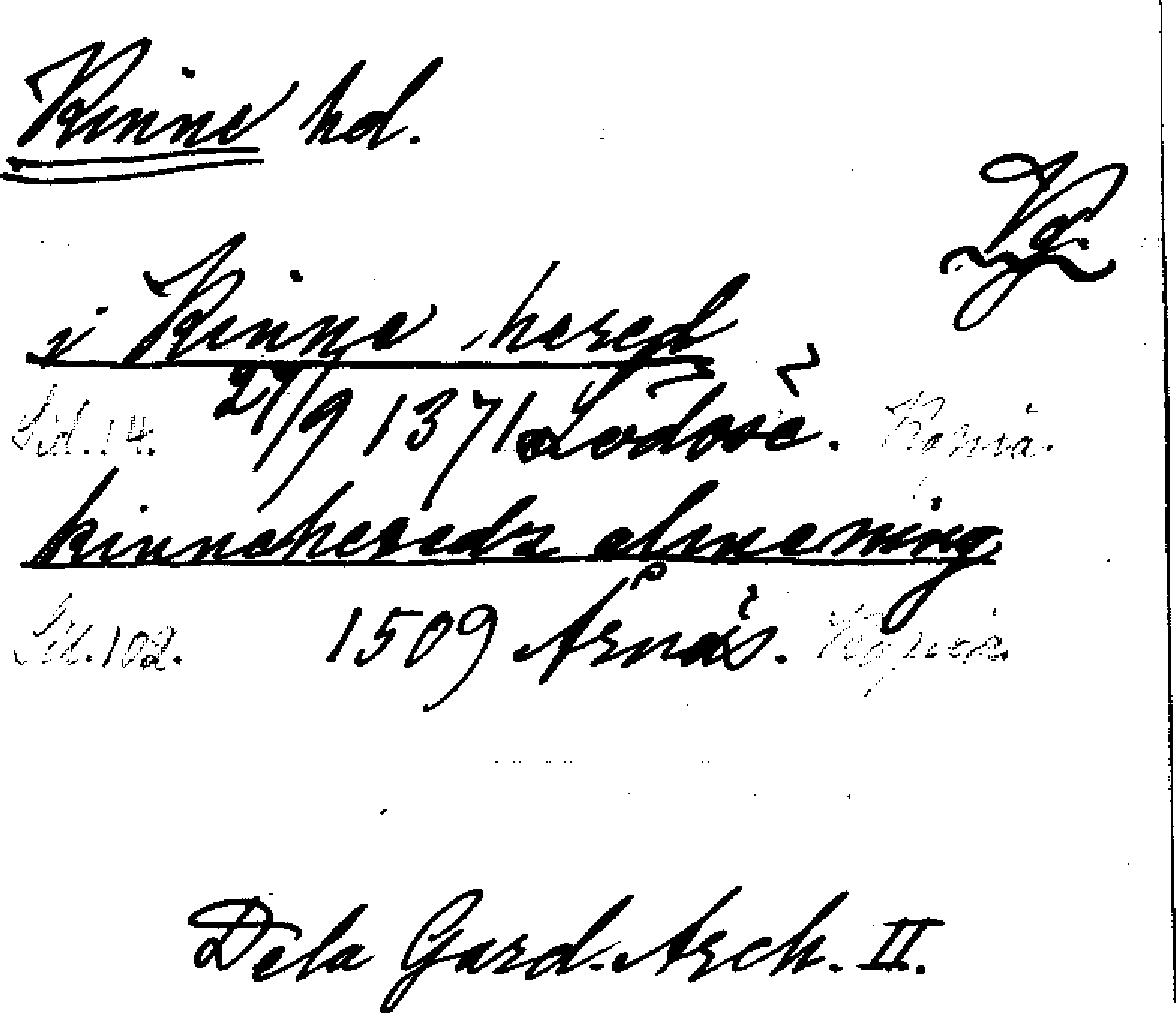 Kinne hd.
Vg.
i Kinne hered
Sid. 14. 27/9 1371 Lödöse. Kopia.
kinneheredz almening
Sid. 102. 1509 Årnäs. Kopia.
Dela Gard. Arch. II.